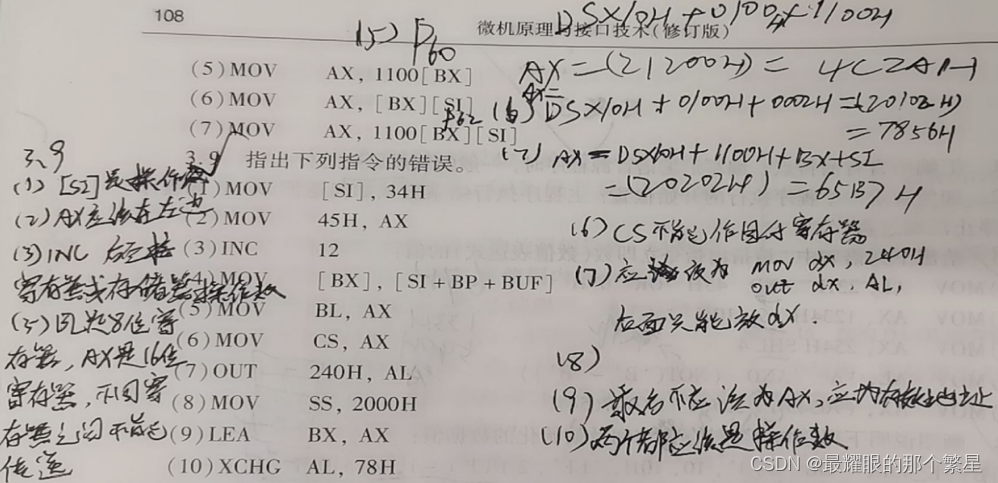 108
微机原理与接口技术(修订版)
DSX10H + 0100H + 1100H
(5) P60
(5) MOV AX, 1100[BX]
AX = (21200H) = 4C2AH
(6) MOV AX, [BX][SI]
(6) DSX10H + 0100H + 0002H = (20102H)
= 7856H
(7) MOV AX, 1100[BX][SI]
(7) AX = DSX10H + 1100H + BX + SI
= (21202H) = 65B7H
3.9 指出下列指令的错误。
(1) MOV [SI], 34H
(2) MOV 45H, AX
(3) INC 12
(4) MOV [BX], [SI+BP+BUF]
(5) MOV BL, AX
(6) MOV CS, AX
(7) OUT 240H, AL
(8) MOV SS, 2000H
(9) LEA BX, AX
(10) XCHG AL, 78H
3.9
(1) [SI]是操作数
(2) AX应该在左边
(3) INC 后是
寄存器或存储器操作数
(5) BL是8位寄
存器, AX是16位
寄存器, 不同寄
存器之间不能
传送
(6) CS不能作目的寄存器
(7) 应该改为 mov dx, 240H
out dx, AL,
后面只能放dx.
(8)
(9) 不应该为AX, 应为有效地址
(10) 两个都应该是操作数
CSDN @最耀眼的那个繁星